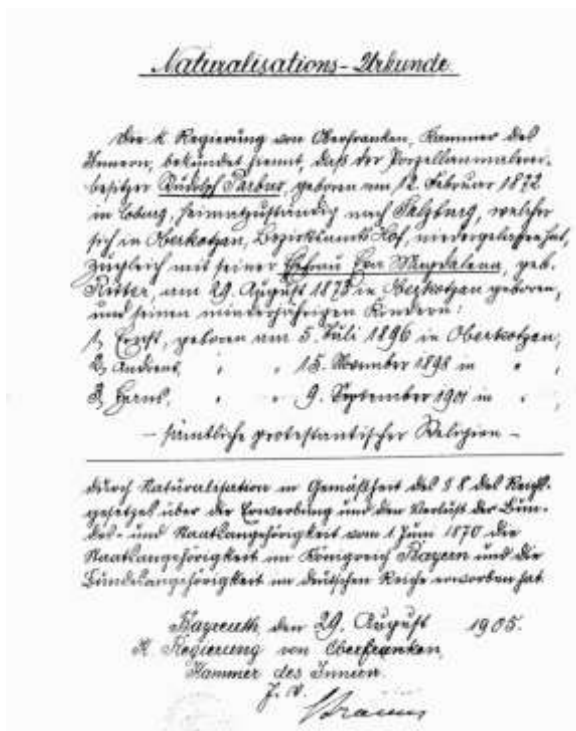 Naturalisations-Urkunde.
Die K. Regierung von Oberfranken, Kammer des
Innern, bekundet hiemit, daß der Porzellanmalerei-
besitzer Rudolph, geboren am 12. Februar 1872
in Coburg, heimatzuständig nach Salzburg, welcher
sich in Oberkotzau, Bezirksamts Hof, niedergelassen hat,
zugleich mit seiner Ehefrau Eva Magdalena, geb.
am 29. August 1873 in Oberkotzau geboren,
und seinen minderjährigen Kindern:
1, geboren am 5. Juli 1896 in Oberkotzau,
2, Andreas, " " 15. November 1898 in " ,
3, Hans, " " 9. September 1901 in " ,
– sämtliche protestantischer Religion –
durch Naturalisation in Gemäßheit des § 8 des Reichs-
gesetzes über die Erwerbung und den Verlust der Bun-
des- und Staatsangehörigkeit vom 1. Juni 1870 die
Staatsangehörigkeit im Königreich Bayern und die
Bundesangehörigkeit im deutschen Reiche erworben hat.
Bayreuth, den 29. August 1905.
K. Regierung von Oberfranken,
Kammer des Innern.
J. V.